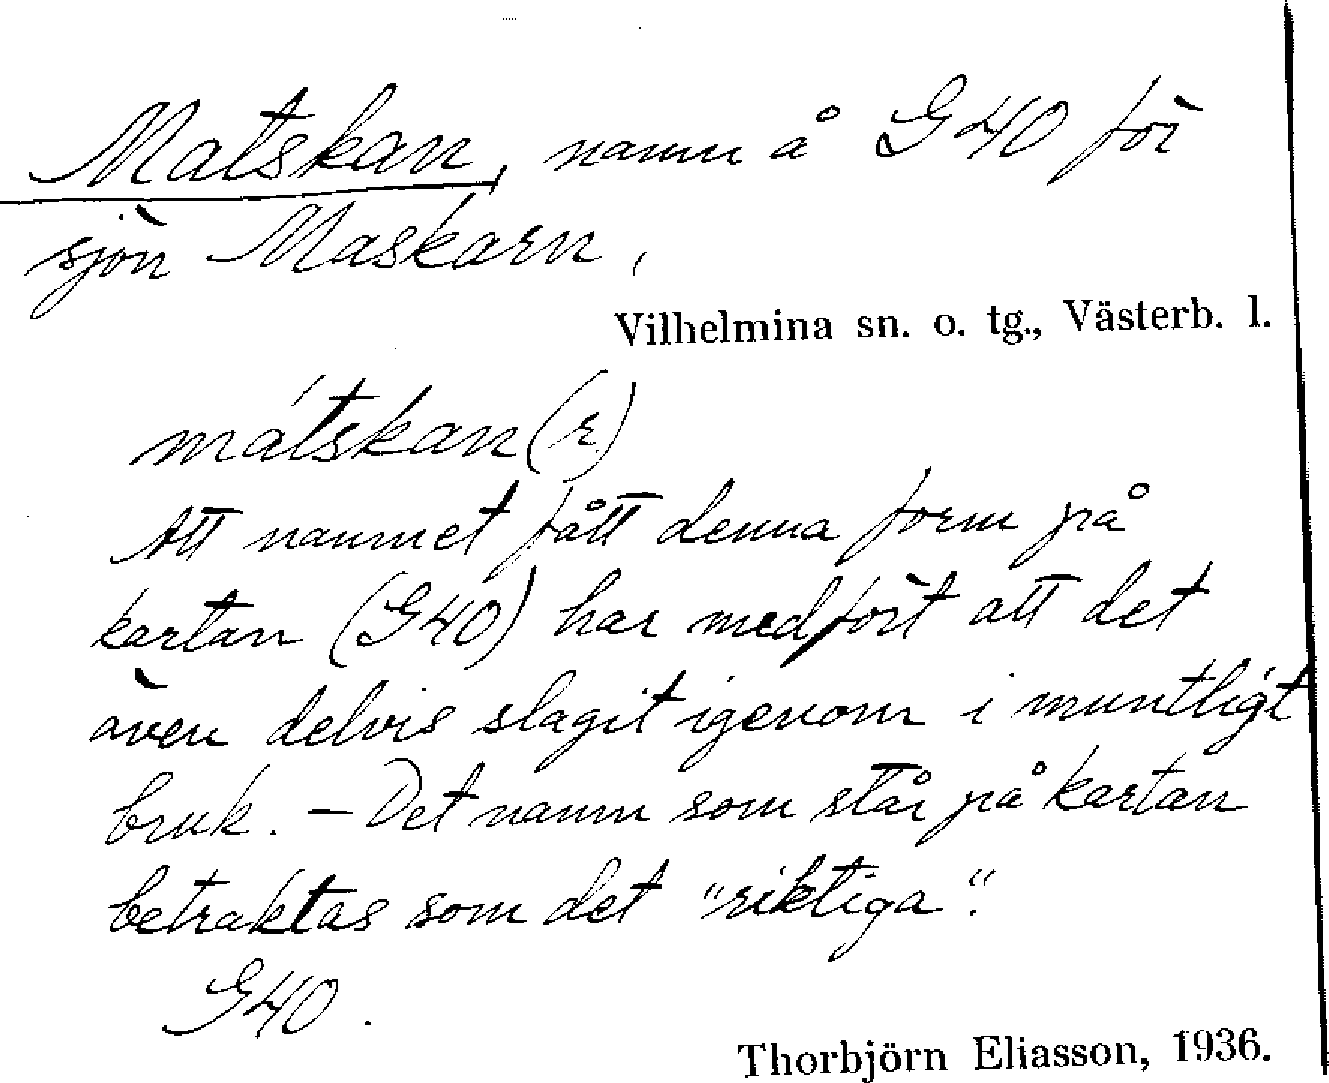 Matskan, namn å G40 för
sjön Maskarn,
Vilhelmina sn. o. tg., Västerb. l.
mátskan(r)
Att namnet fått denna form på
kartan (G40) har medfört att det
även delvis slagit igenom i muntligt
bruk. – Det namn som står på kartan
betraktas som det "riktiga".
G40.
Thorbjörn Eliasson, 1936.